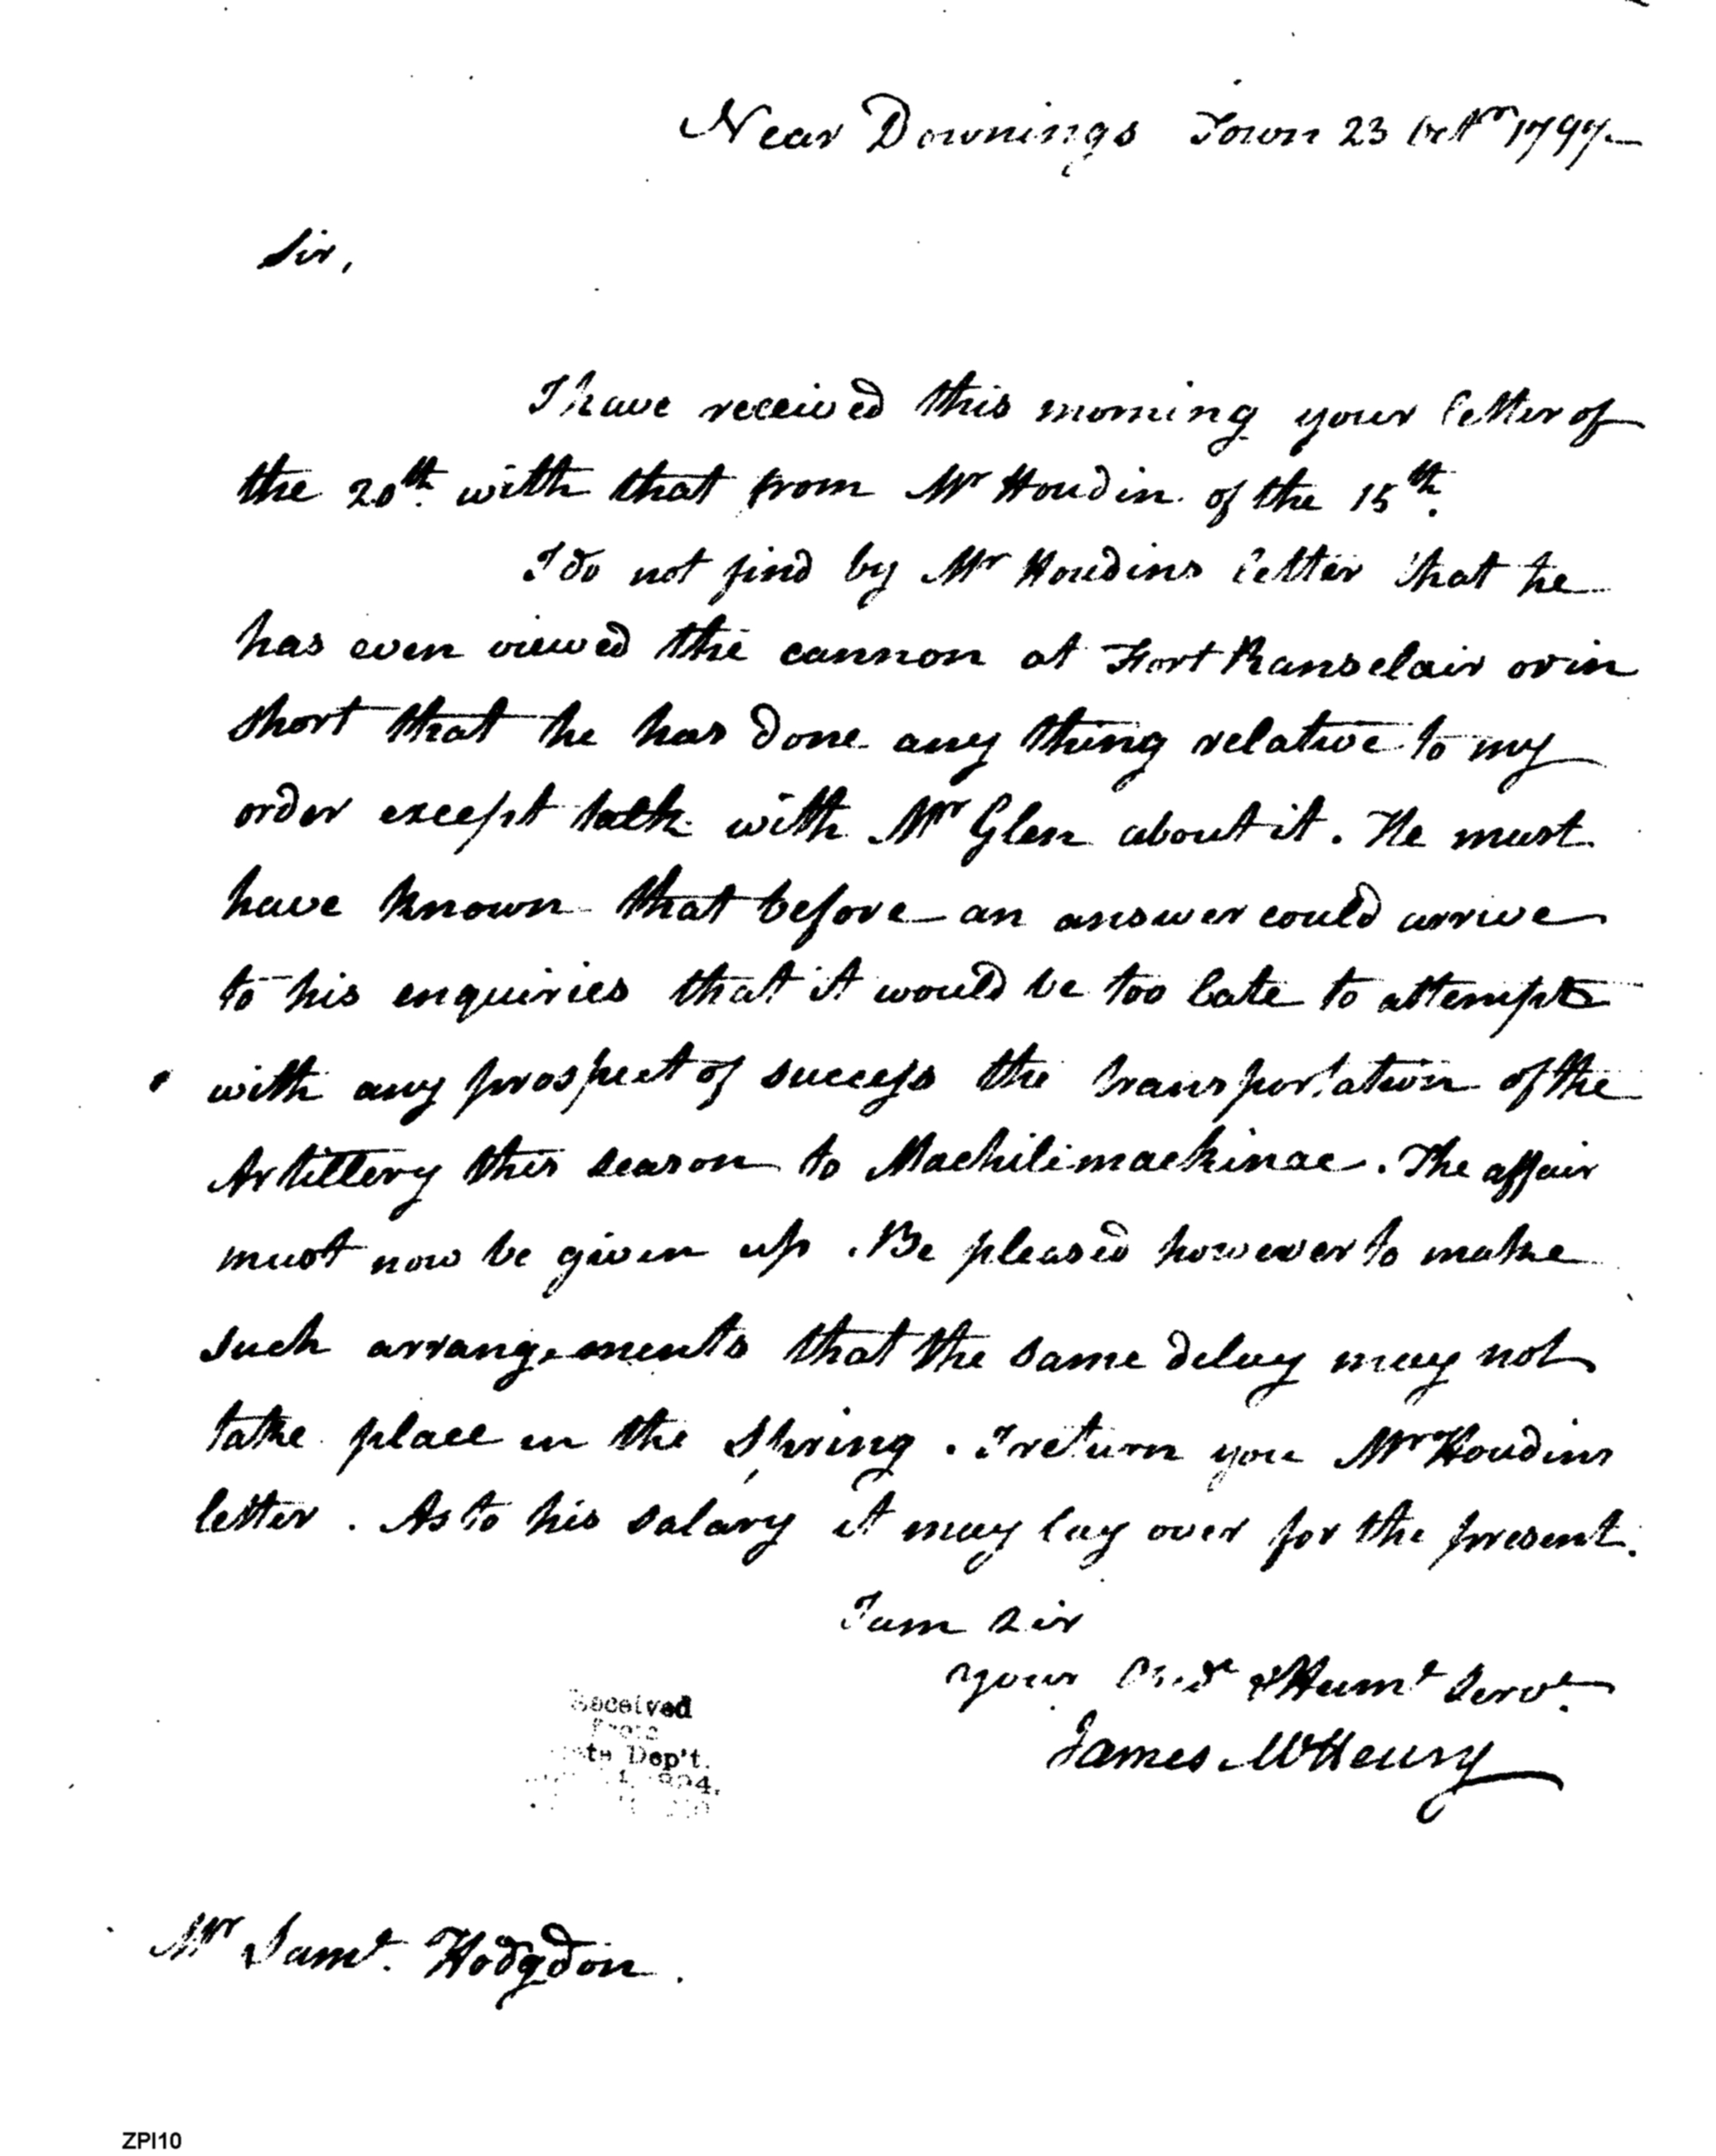 Near Downings Town 23 Octr 1797
Sir,
I have received this morning your letter of
the 20th. with that from Mr Houdin of the 15th.
I do not find by Mr Houdins letter that he
has even viewed the cannon at Fort Ranselair or in
short that he has done any thing relative to my
order except talk with Mr Glen about it. He must
have known that before an answer could arrive
to his enquiries that it would be too late to attempt
with any prospect of success the transportation of the
Artillery this season to Machilimackinac. The affair
must now be given up. Be pleased however to make
such arrangements that the same delay may not
take place in the Spring. I return you Mr Houdins
letter. As to his salary it may lay over for the present.
I am Sir
your Obedt & Humt Servt.
James McHenry
Received
From
Dep't.
Mr Saml. Hodgdon.
ZPI10